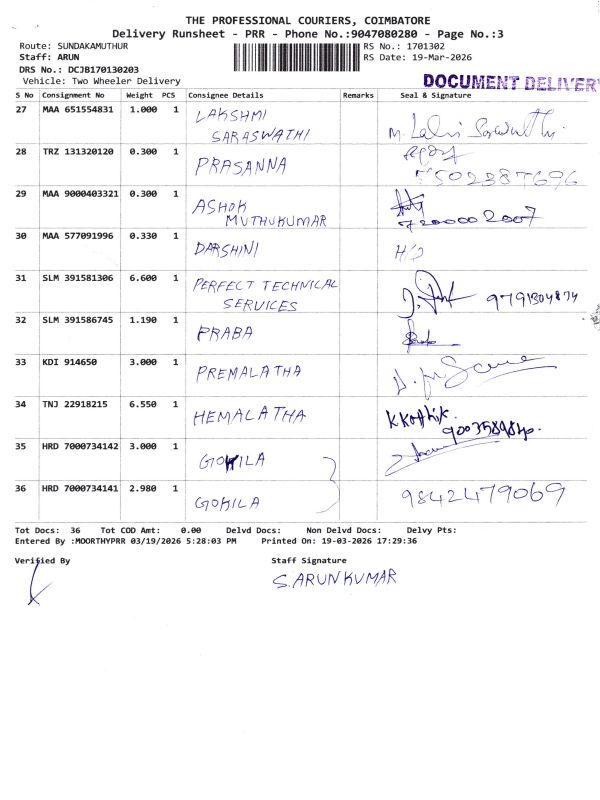 THE PROFESSIONAL COURIERS, COIMBATORE
Delivery Runsheet - PRR - Phone No.:9047080280 - Page No.:3
Route: SUNDAKAMUTHUR RS No.: 1701302
Staff: ARUN RS Date: 19-Mar-2026
DRS No.: DCJB170130203
Vehicle: Two Wheeler Delivery
DOCUMENT DELIVER
S No Consignment No Weight PCS Consignee Details Remarks Seal & Signature
27 MAA 651554831 1.000 1 LAKSHMI
SARASWATHI
28 TRZ 131320120 0.300 1 PRASANNA
29 MAA 9000403321 0.300 1 ASHOK
MUTHUKUMAR
30 MAA 577091996 0.330 1 DARSHINI H/O
31 SLM 391581306 6.600 1 PERFECT TECHNICAL
SERVICES
32 SLM 391586745 1.190 1 PRABA
33 KDI 914650 3.000 1 PREMALATHA
34 TNJ 22918215 6.550 1 HEMALATHA
35 HRD 7000734142 3.000 1 GOKILA
36 HRD 7000734141 2.980 1 GOKILA 9842479069
Tot Docs: 36 Tot COD Amt: 0.00 Delvd Docs: Non Delvd Docs: Delvy Pts:
Entered By :MOORTHYPRR 03/19/2026 5:28:03 PM Printed On: 19-03-2026 17:29:36
Verified By Staff Signature
S.ARUNKUMAR